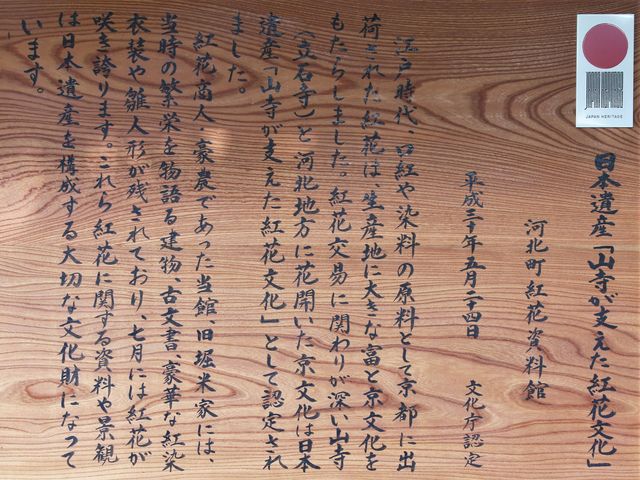 日本遺産「山寺が支えた紅花文化」
河北町紅花資料館
平成三十年五月二十四日　文化庁認定
江戸時代、口紅や染料の原料として京都に出
荷された紅花は、生産地に大きな富と京文化を
もたらしました。紅花交易に関わりが深い山寺
(立石寺)と河北地方に花開いた京文化は日本
遺産「山寺が支えた紅花文化」として認定され
ました。
紅花商人・豪農であった当館、旧堀米家には、
当時の繁栄を物語る建物、古文書、豪華な紅染
衣装や雛人形が残されており、七月には紅花が
咲き誇ります。これら紅花に関する資料や景観
は日本遺産を構成する大切な文化財になって
います。
JAPAN HERITAGE